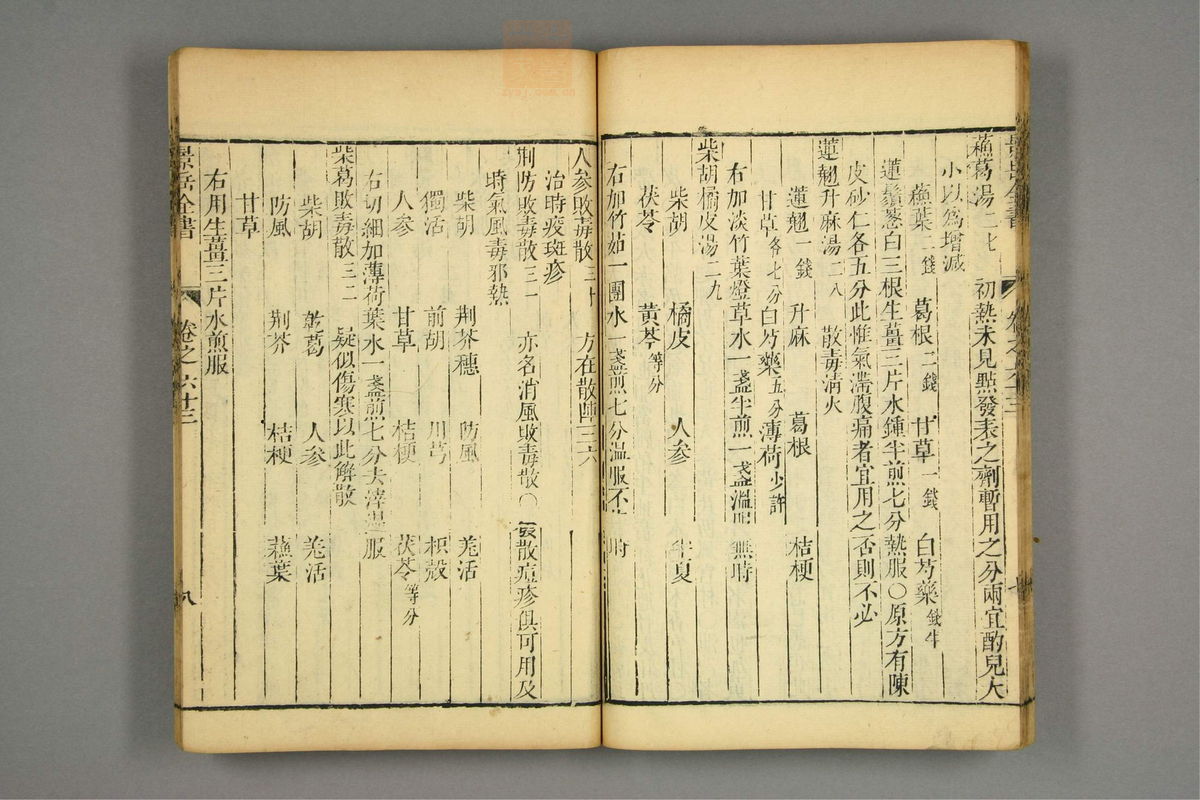 景岳全書 卷之六十三
蘇葛湯二七 初熱未見點發表之劑暫用之分兩宜酌兒大
小以爲增減
蘇葉二錢 葛根二錢 甘草一錢 白芍藥錢半
連鬚葱白三根生薑三片水鍾半煎七分熱服〇原方有陳
皮砂仁各五分此惟氣滯腹痛者宜用之否則不必
蓮翹升麻湯二八 散毒淸火
蓮翹一錢 升麻 葛根 桔梗
甘草各七分 白芍藥五分 薄荷少許
右加淡竹葉燈草水一盞半煎一盞溫服無時
柴胡橘皮湯二九
柴胡 橘皮 人參 半夏
茯苓 黃芩等分
右加竹茹一團水一盞煎七分溫服不 時
人參敗毒散三十 方在散陣三六
治時疫斑疹
荆防敗毒散三一 亦名消風敗毒散〇 散痘疹俱可用及
時氣風毒邪熱
柴胡 荆芥穗 防風 羗活
獨活 前胡 川芎 枳殻
人參 甘草 桔梗 茯苓等分
右切細加薄荷葉水一盞煎七分去滓溫服
柴葛敗毒散三二 疑似傷寒以此解散
柴胡 葛 人參 羗活
防風 荆芥 桔梗 蘇葉
甘草
右用生薑三片水煎服
景岳全書 卷之六十三 八